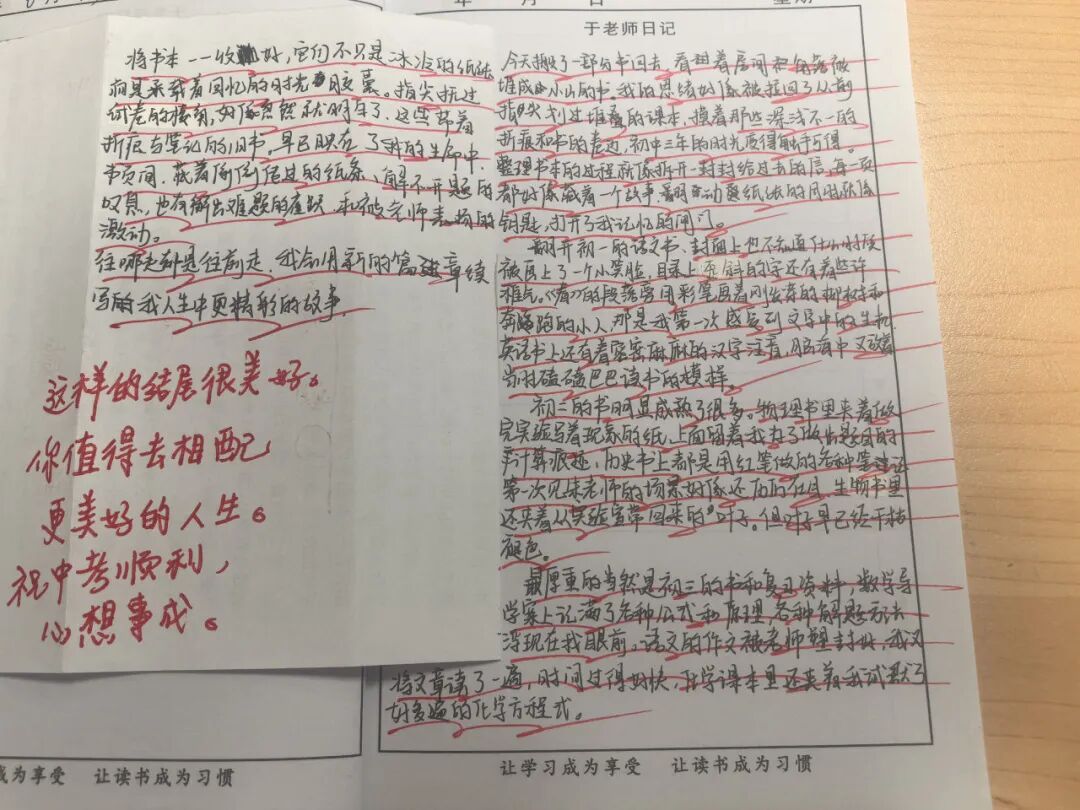 年 月 日 星期
于老师日记
今天搬了一部分书回去,看着房间角落被
堆成小山的书,我的思绪好像被拉回了从前
我指尖划过堆叠的课本,摸着那些深浅不一的
折痕和书的卷边,初中三年的时光变得触手可得。
整理书本的过程就像拆开一封封给过去的信,每一页
都好像藏着一个故事,翻动纸张的同时就像
钥匙,打开了我记忆的闸门。
翻开初一的语文书,封面上也不知道什么时候
被画上了一个小笑脸,目录上歪斜的字还有着些许
稚气。《春》的段落旁用彩笔画着刚发芽的柳树和
奔跑的小人,那是我第一次感受到文字中的生机,
英语书上还有着密密麻麻的汉字注音,脑海中又放着
当时磕磕巴巴读书的模样。
初二的书明显成熟了很多。物理书里夹着做
完实验写着现象的纸,上面留着我为了做出题目的
计算痕迹,历史书上都是用红笔做的各种笔记
第一次见朱老师的场景好像还历历在目,生物书里
还夹着从实验室带回来的叶子。但叶子早已经干枯
褪色。
最厚重的当然是初三的书和复习资料,数学导
学案上记满了各种公式和原理,各种解题方法
浮现在我眼前,语文的作文被老师塑封好,我又
将文章读了一遍,时间过得好快,化学课本里还夹着我试默了
好多遍的化学方程式。
将书本一一收好,它们不只是冰冷的纸张
而是承载着回忆的时光胶囊。指尖抚过
卷的棱角,好像忽然就明白了,这些带着
折痕与笔记的旧书,早已映在了我的生命中
书页间,藏着偷偷传过的纸条、解不开题的
叹息,也有解出难题的雀跃,和被老师表扬的
激动。
往哪走都是往前走,我会用新的篇章续
写的我人生中更精彩的故事
这样的结尾很美好。
你值得去相配
更美好的人生。
祝中考顺利,
心想事成。
成为享受 让读书成为习惯
让学习成为享受 让读书成为习惯